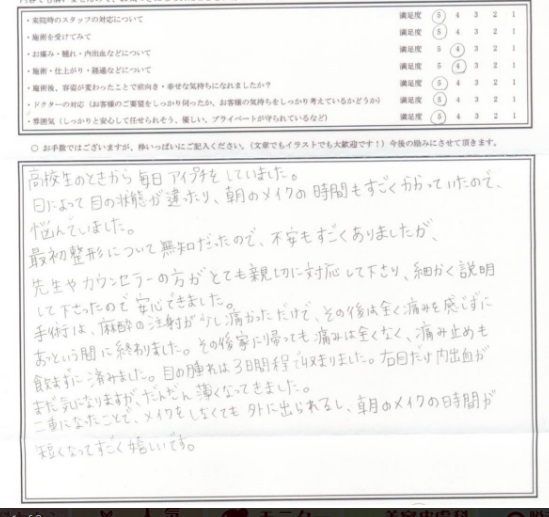 ・来院時のスタッフの対応について 満足度 5 4 3 2 1
・施術を受けてみて 満足度 5 4 3 2 1
・お痛み・腫れ・内出血などについて 満足度 5 4 3 2 1
・施術・仕上がり・経過などについて 満足度 5 4 3 2 1
・施術後、容姿が変わったことで前向き・幸せな気持ちになれましたか? 満足度 5 4 3 2 1
・ドクターの対応(お客様のご要望をしっかり伺ったか、お客様の気持ちをしっかり考えているかどうか) 満足度 5 4 3 2 1
・雰囲気(しっかりと安心して任せられそう、優しい、プライベートが守られているなど) 満足度 5 4 3 2 1
○ お手数ではございますが、枠いっぱいにご記入ください。(文章でもイラストでも大歓迎です!)今後の励みにさせて頂きます。
高校生のときから毎日アイプチをしていました。
日によって目の状態が違ったり、朝のメイクの時間もすごくかかっていたので、
悩んでいました。
最初整形について無知だったので、不安もすごくありましたが、
先生やカウンセラーの方がとても親切に対応して下さり、細かく説明
して下さったので安心できました。
手術は、麻酔の注射が少し痛かっただけで、その後は全く痛みを感じずに
あっという間に終わりました。その後家に帰っても痛みは全くなく、痛み止めも
飲まずに済みました。目の腫れは3日間程で収まりました。右目だけ内出血が
まだ気になりますが、だんだん薄くなってきました。
二重になったことで、メイクをしなくても外に出られるし、朝のメイクの時間が
短くなってすごく嬉しいです。